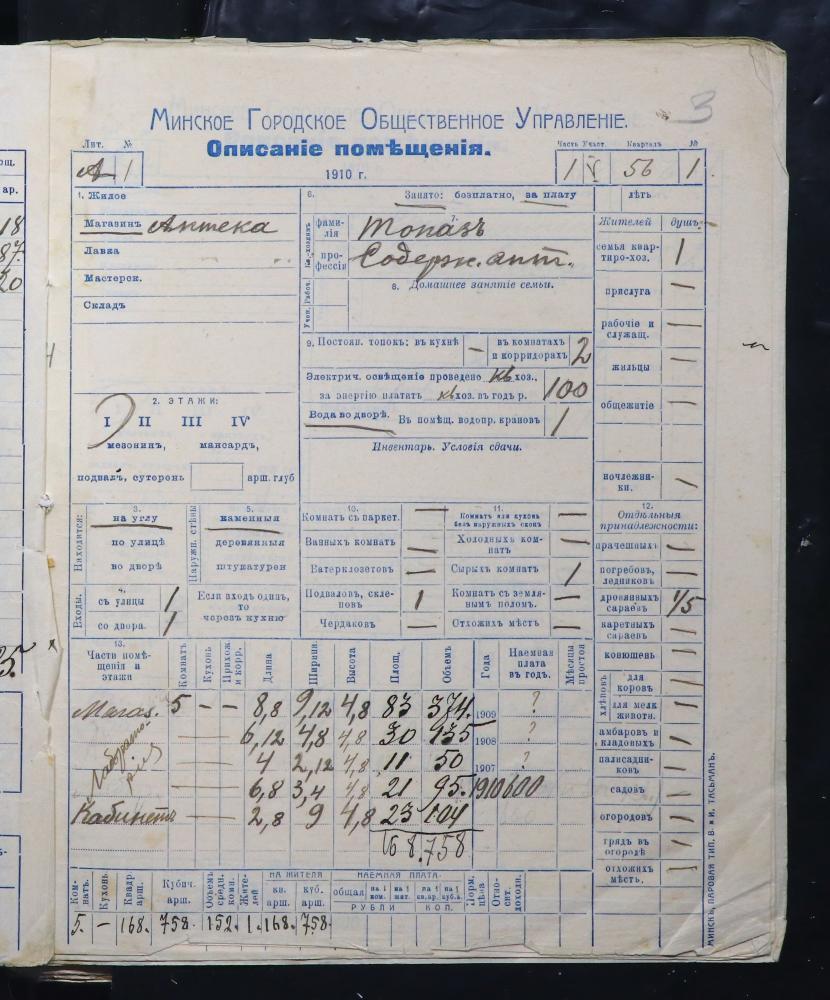 3
Минское Городское Общественное Управленіе.
Лит. № Описаніе помѣщенія. Часть Участ. Кварталъ №
А 1 1910 г. 1 V 56 1
1. Жилое
Магазинъ Аптека
Лавка
Мастерск.
Складъ
2. ЭТАЖИ:
I II III IV
мезонинъ, мансардъ,
подвалъ, сутеренъ арш. глуб
6. Занято: безплатно, за плату лѣтъ
7.
Кв.-хозяинъ фами-лія Топазъ
про-фессія Содерж. апт.
Учен. Рабоч.
8. Домашнее занятіе семьи.
9. Постоян. топокъ: въ кухнѣ — въ комнатахъ и корридорахъ 2
Электрич. освѣщеніе проведено кв. хоз.,
за энергію платитъ кв. хоз. въ годъ р. 100
Вода во дворѣ. Въ помѣщ. водопр. крановъ 1
Инвентарь. Условія сдачи.
Жителей душъ
семья квар-тиро-хоз. 1
прислуга —
рабочіе и служащ. —
жильцы —
общежитіе —
ночлежни-ки. —
Находится: 3.
на углу
по улицѣ
во дворѣ
Наружн. стѣны 5.
каменныя
деревянныя
штукатурен
Входы: 4.
съ улицы 1
со двора. 1
Если входъ одинъ,
то
черезъ кухню
10.
Комнатъ съ паркет. —
Ванныхъ комнатъ —
Ватерклозетовъ —
Подваловъ, скле-повъ 1
Чердаковъ —
11.
Комнатъ или кухонь безъ наружныхъ оконъ —
Холодныхъ ком-натъ —
Сырыхъ комнатъ 1
Комнатъ съ земля-нымъ поломъ. —
Отхожихъ мѣстъ —
12.
Отдѣльныя
принадлежности:
прачешныхъ —
погребовъ, ледниковъ —
дровяныхъ сараевъ 1/5
каретныхъ сараевъ —
конюшень —
хлѣвовъ для коровъ —
для мелк животн. —
амбаровъ и кладовыхъ —
палисадни-ковъ —
садовъ —
огородовъ —
грядъ въ огородѣ —
отхожихъ мѣстъ. —
13.
Части помѣ-щенія и этажи Комнатъ Кухонь Прихож. и корр. Длина Ширина Высота Площ. Объемъ Года Наемная плата въ годъ. Мѣсяцы простоя
Магаз. 5 — — 8,8 9,12 4,8 83 374. 1909 ?
Лаборато-рія 6,12 4,8 4,8 30 135 1908 ?
4 2,12 4,8 11 50 1907 ?
6,8 3,4 4,8 21 95. 1910 600
Кабинетъ 2,8 9 4,8 23 104
168. 758
Ком-натъ. Кухонь. Квадр. арш. Кубич. арш. Объемъ средн. комн. Жите-лей НА ЖИТЕЛЯ кв. арш. куб. арш. НАЕМНАЯ ПЛАТА общая на 1 ком. на 1 жит. на 1 кв.ар. на 1 куб.а. РУБЛИ КОП. Норм. цѣна Отно-сит. доходн.
5. — 168. 758. 152. 1. 168. 758.
МИНСКЪ, ПАРОВАЯ ТИП. В. и И. ТАСЬМАНЪ.